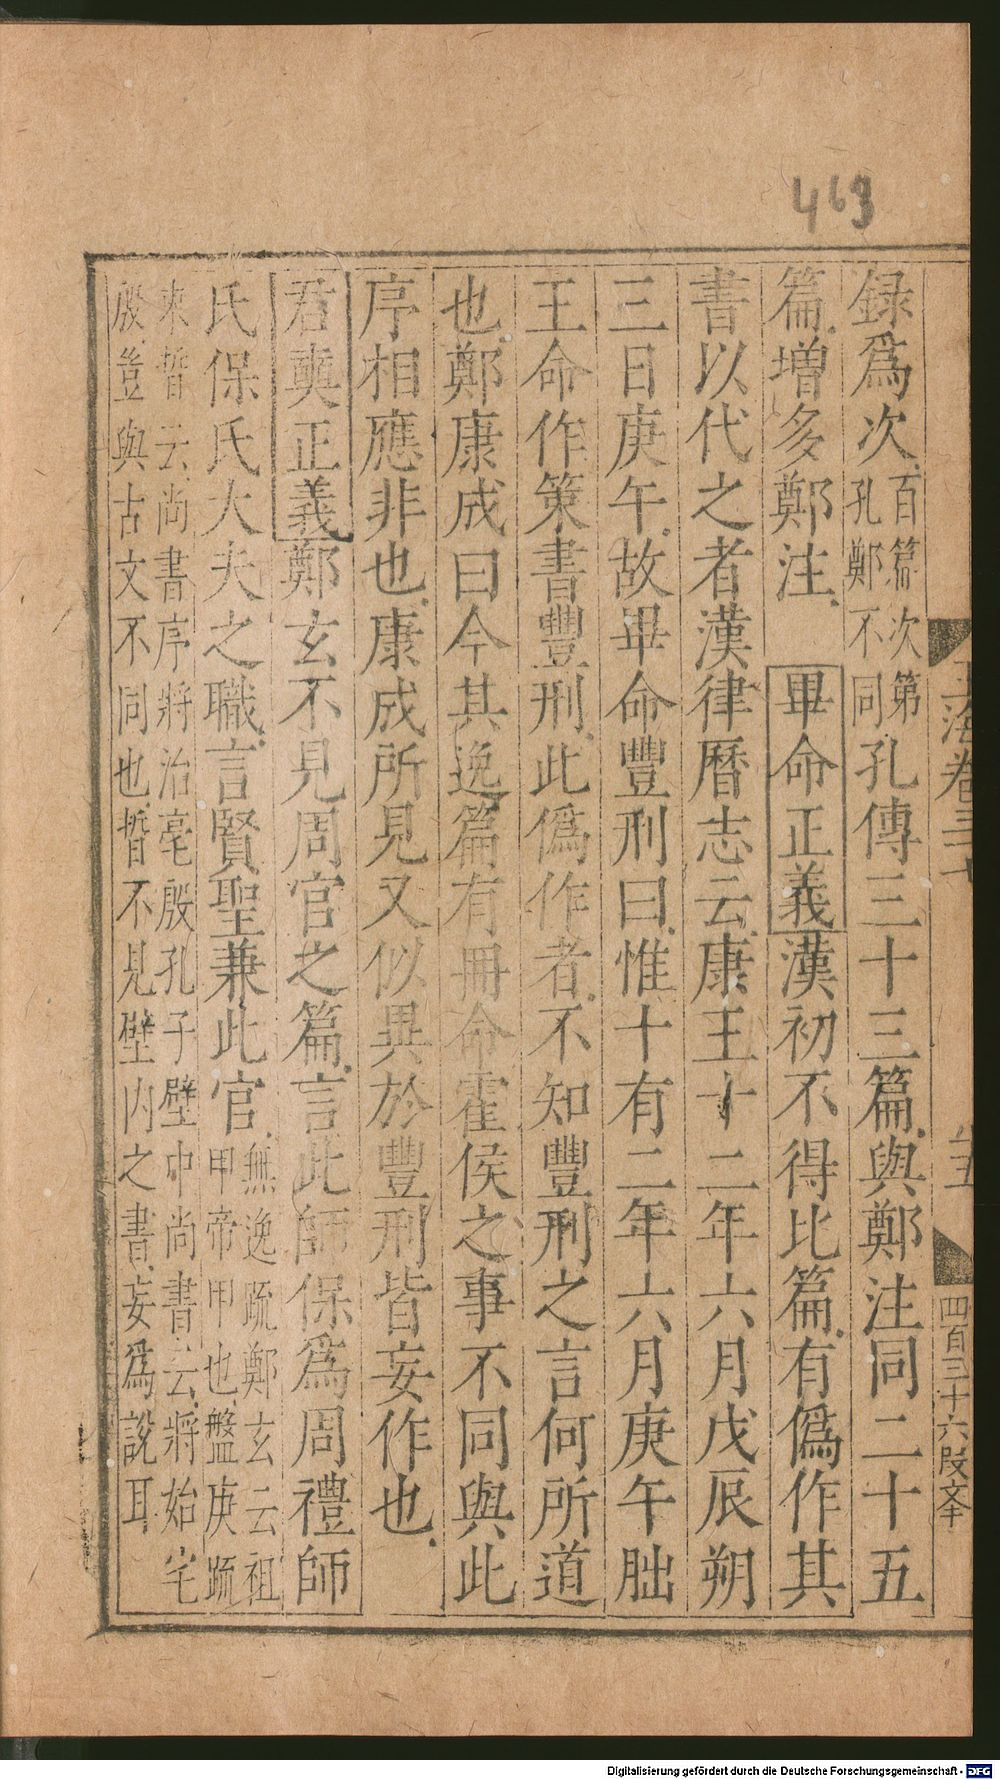 463
玉海卷三十
十五
四百三十六段文
録爲次百篇次第孔鄭不同孔傳三十三篇與鄭注同二十五
篇增多鄭注 畢命正義漢初不得比篇有僞作其
書以代之者漢律曆志云康王十二年六月戊辰朔
三日庚午故畢命豐刑曰惟十有二年六月庚午朏
王命作策書豐刑此僞作者不知豐刑之言何所道
也鄭康成曰今其逸篇有冊命霍侯之事不同與此
序相應非也康成所見又似異於豐刑皆妄作也
君奭正義鄭玄不見周官之篇言此師保爲周禮師
氏保氏大夫之職言賢聖兼此官無逸疏鄭玄云祖甲帝甲也盤庚疏
束晳云尚書序將治亳殷孔子壁中尚書云將始宅
殷豈與古文不同也晳不見壁內之書妄爲說耳
Digitalisierung gefördert durch die Deutsche Forschungsgemeinschaft - DFG